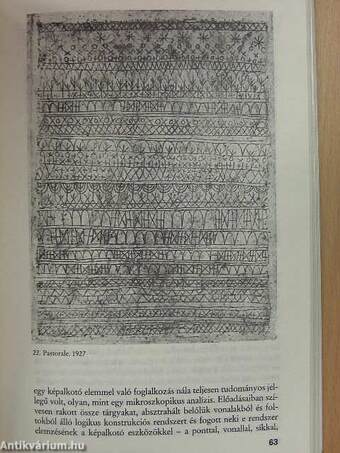 22. Pastorale. 1927
egy képalkotó elemmel való foglalkozás nála teljesen tudományos jel-
legű volt, olyan, mint egy mikroszkopikus analízis. Előadásaiban szí-
vesen rakott össze tárgyakat, absztrahált belőlük vonalakból és fol-
tokból álló logikus konstrukciós rendszert és fogott neki e rendszer
elemzésének a képalkotó eszközökkel – a ponttal, vonallal, síkkal,
63
antikvárium.hu